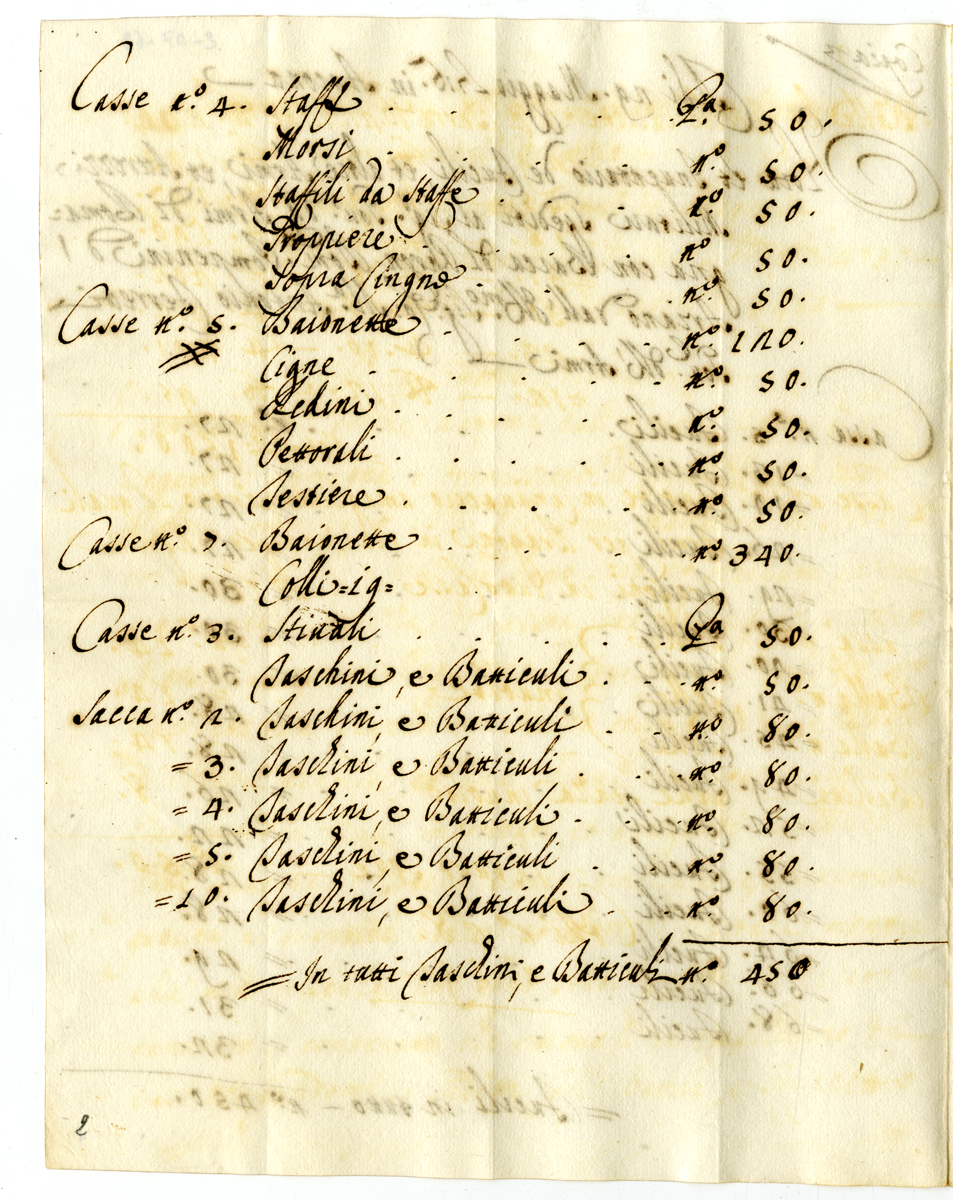 Casse n.º 4. Staffe . . . . . . P.ª 50.
Morsi . . . . . . n.º 50.
Staffili da Staffe . . . . n.º 50.
Groppiere . . . . . n.º 50.
Sopra Cingne . . . . . n.º 50.
Casse n.º 5. Baionette . . . . . n.º 120.
Cigne . . . . . . n.º 50.
Redini . . . . . . n.º 50.
Pettorali . . . . . . n.º 50.
Testiere . . . . . . n.º 50.
Casse n.º 7. Baionette . . . . n.º 340.
Colli = 19 =
Casse n.º 3. Stivali . . . . . P.ª 50.
Taschini, e Batticuli . . . n.º 50.
Sacca n.º 2. Taschini, e Batticuli . . n.º 80.
= 3. Taschini, e Batticuli . . . n.º 80.
= 4. Taschini, e Batticuli . . . n.º 80.
= 5. Taschini, e Batticuli . . n.º 80.
= 10. Taschini, e Batticuli . . n.º 80.
= In tutti Taschini, e Batticuli n.º 450
2